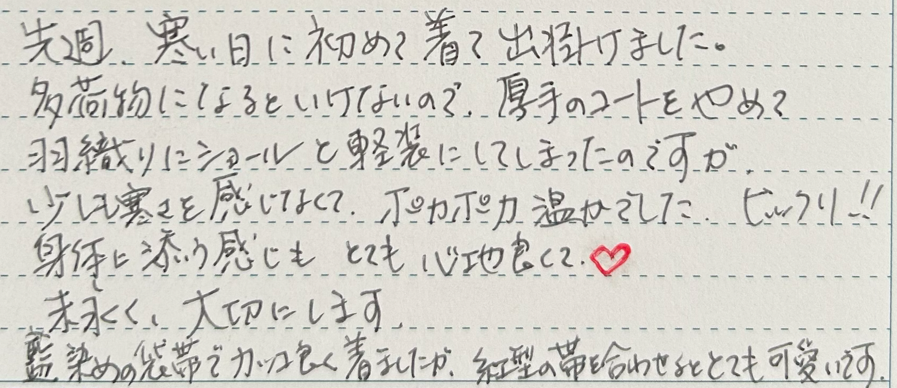 先週、寒い日に初めて着て出掛けました。
多荷物になるといけないので、厚手のコートをやめて
羽織りにショールと軽装にしてしまったのですが、
少しも寒さを感じなくて、ポカポカ温かでした。ビックリ!!
身体に添う感じもとても心地良くて、♡
末永く、大切にします。
藍染めの袋帯でカッコ良く着ましたが、紅型の帯を合わせるととても可愛いです。